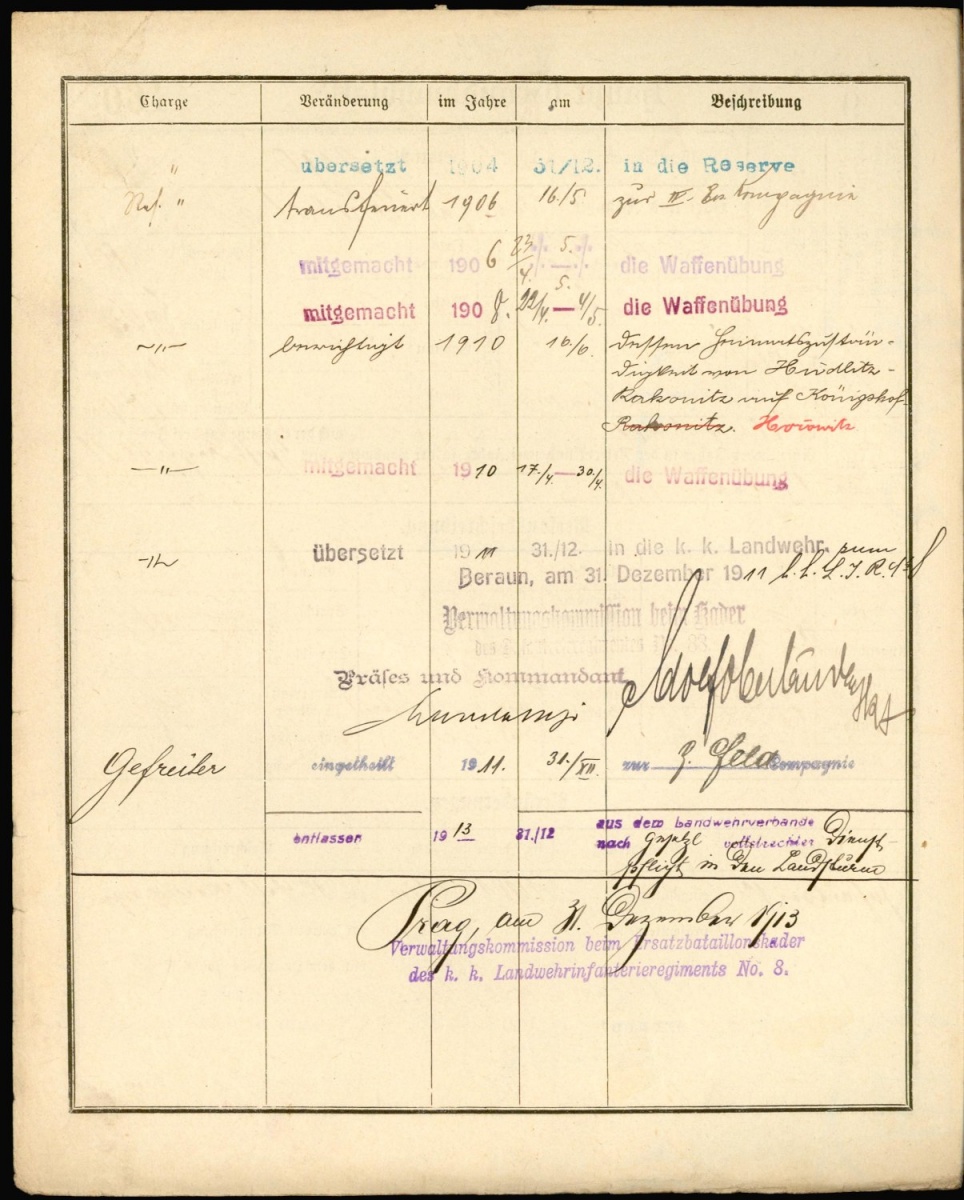 Charge Veränderung im Jahre am Beschreibung
" übersetzt 1904 31/12. in die Reserve
Res. " transferiert 1906 16/5 zur IV. Ers. Kompagnie
mitgemacht 1906 23/4. — 5./5. die Waffenübung
mitgemacht 1908. 22/4. — 4/5. die Waffenübung
-"- berichtigt 1910 16/6. dessen Heimatszustän-
digkeit von Hudlitz-
Rakonitz auf Königshof-
Rakonitz. Horowitz
-"- mitgemacht 1910 17./4. — 30./4. die Waffenübung
-"- übersetzt 1911 31./12. in die k. k. Landwehr. zum
Beraun, am 31. Dezember 1911 k. k. L. I. R. № 8
Verwaltungskommission beim Kader
des Infanterieregimentes Nr. 88
Präses und Kommandant
Adolf Oberländer
Gefreiter eingetheilt 1911. 31./XII. zur 9. Feld Kompagnie
entlassen 1913 31./12 aus dem Landwehrverbande
nach gesetzl vollstreckter Dienst-
pflicht in den Landsturm
Prag, am 31. Dezember 1913
Verwaltungskommission beim Ersatzbataillonskader
des k. k. Landwehrinfanterieregiments No. 8.